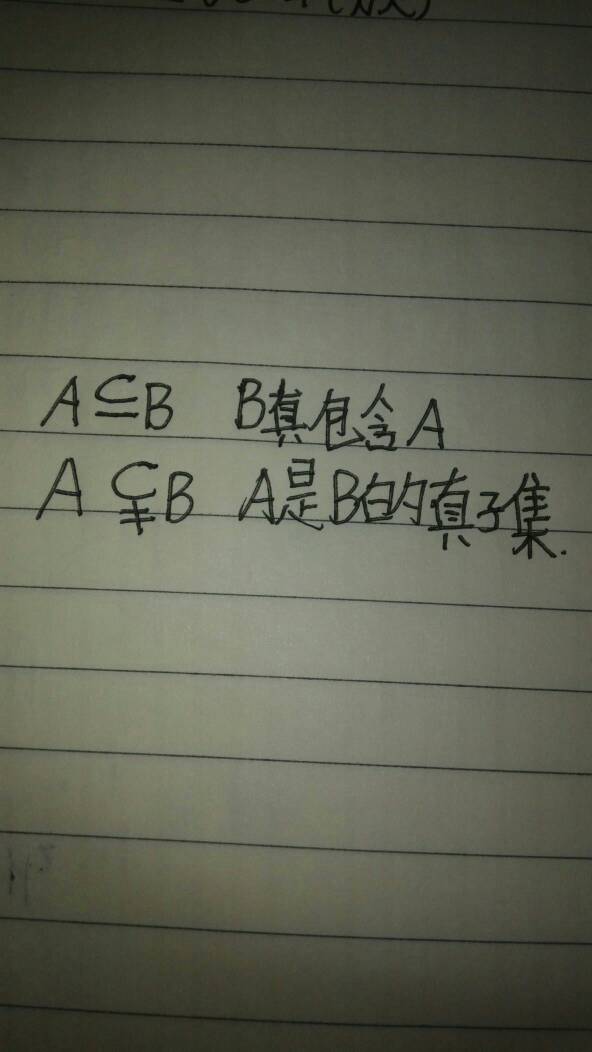 A⊆B B真包含A
A⊊B A是B的真子集.